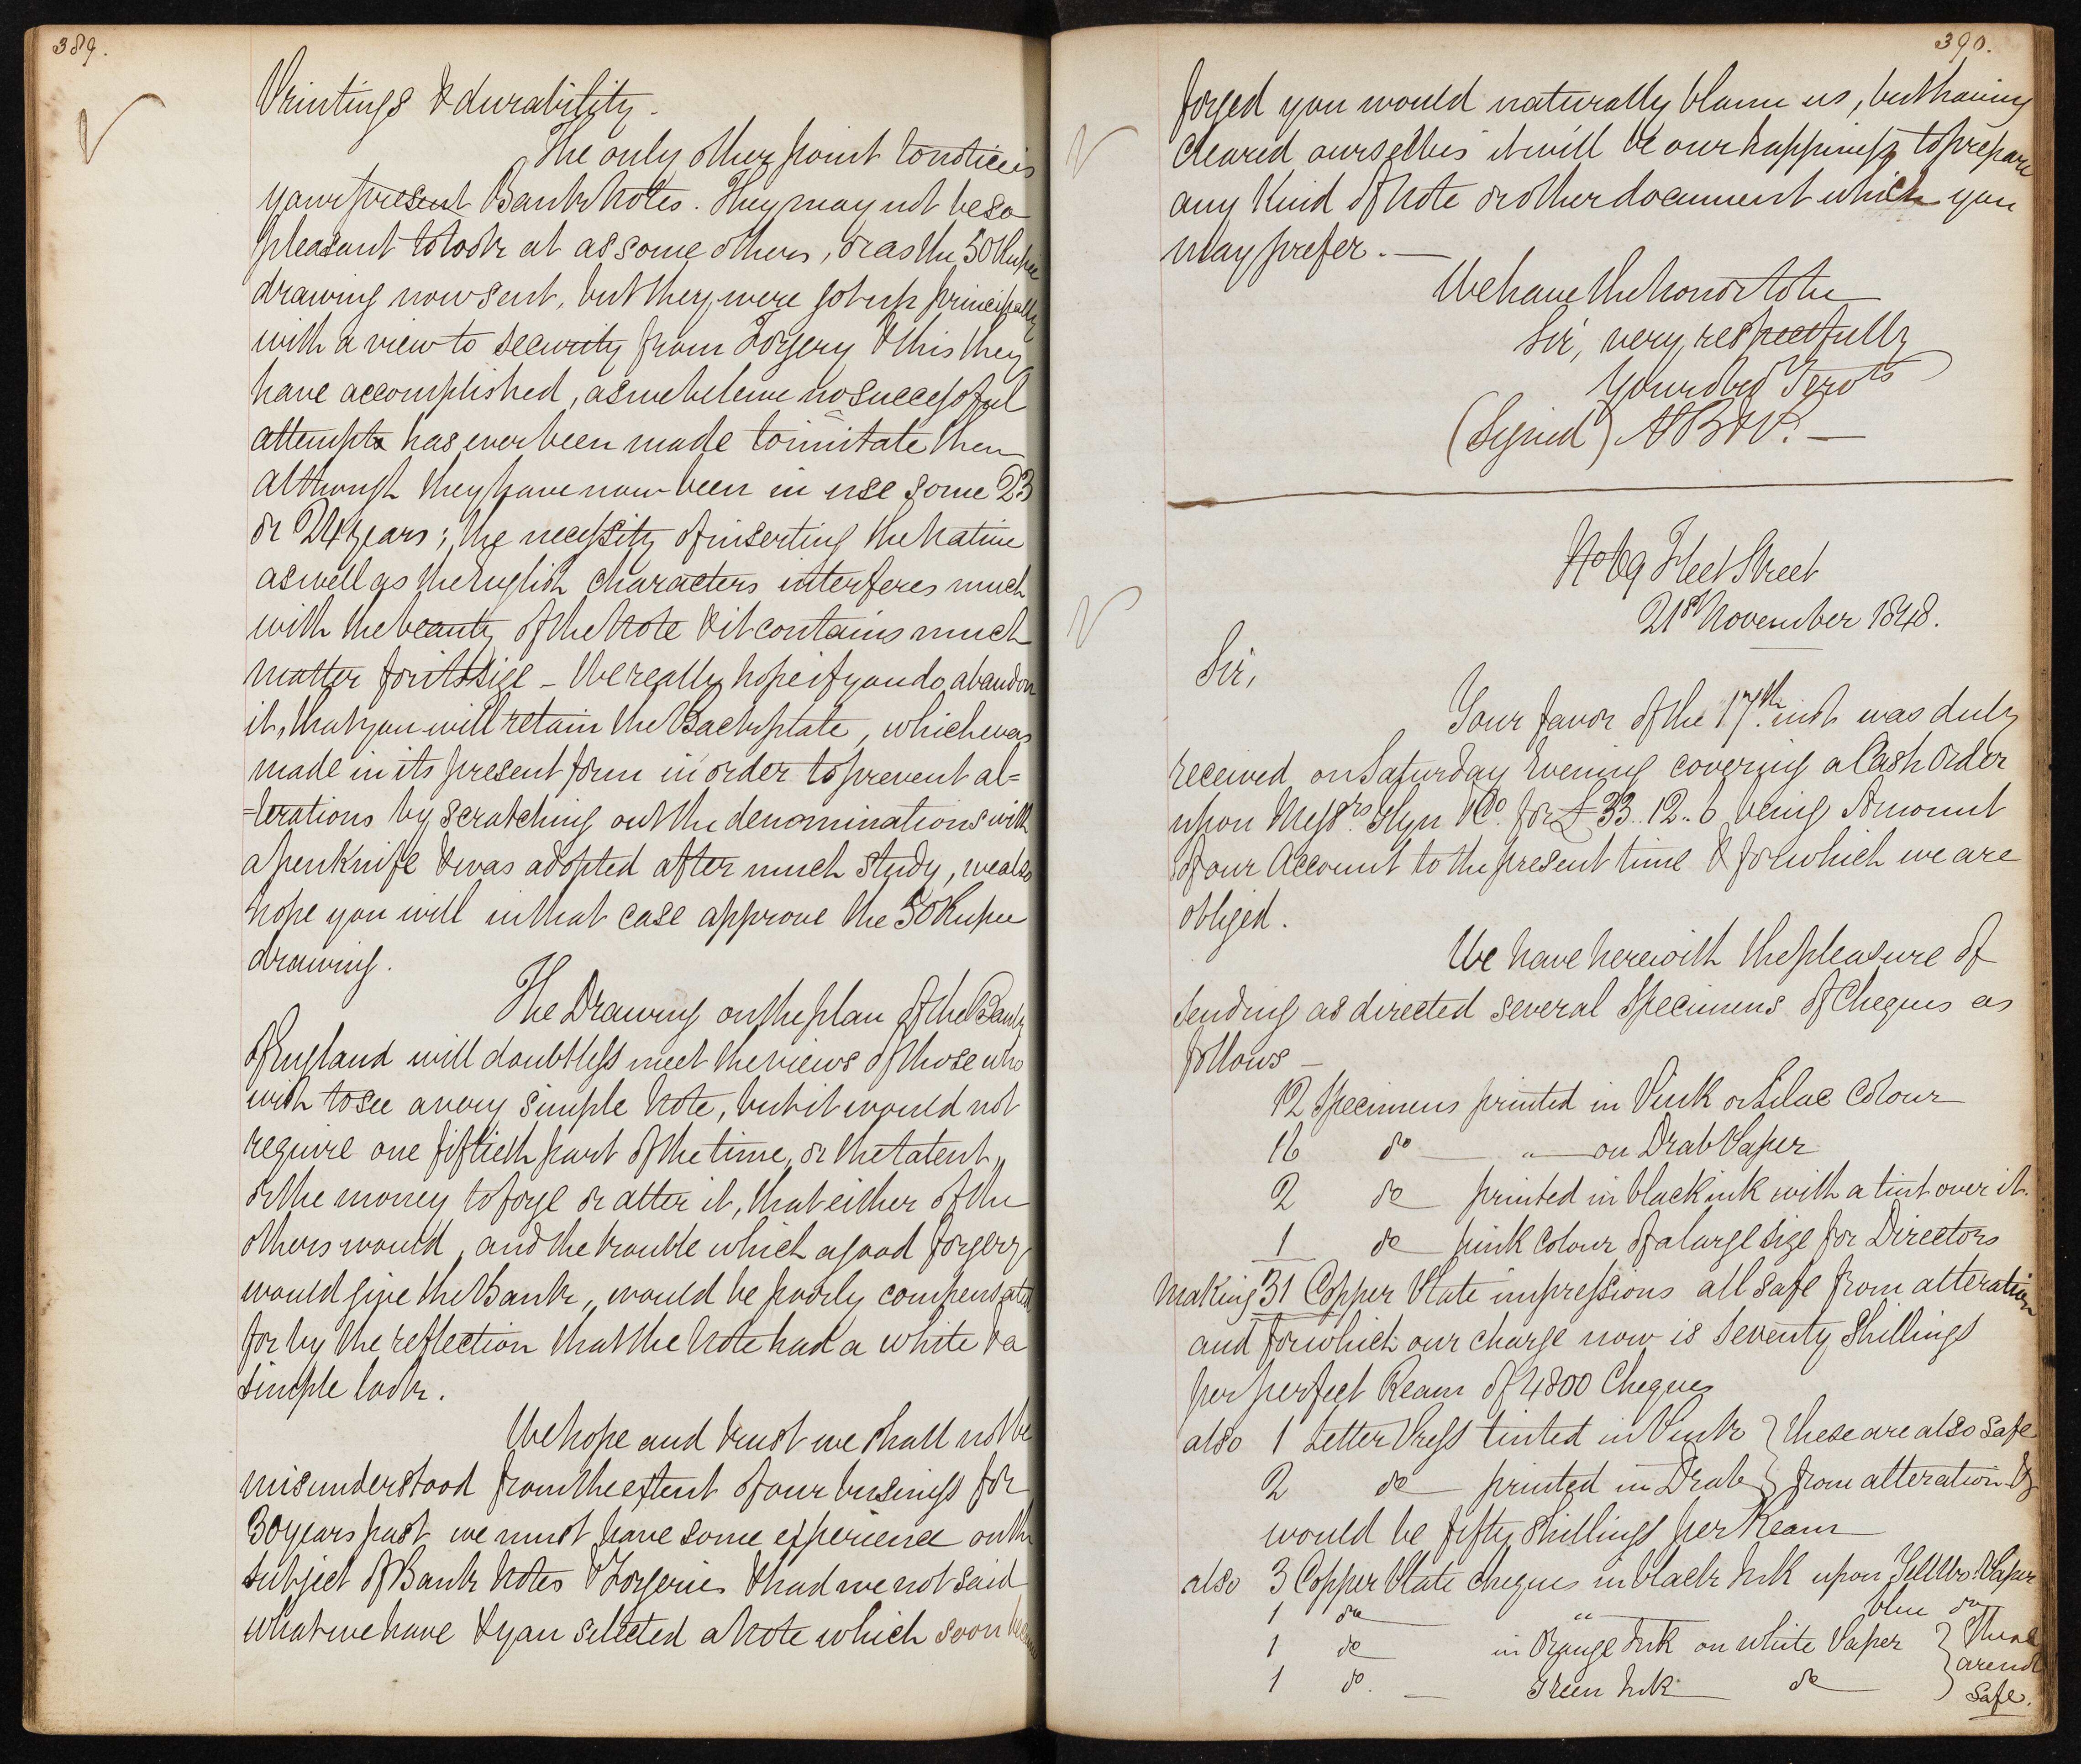 389.
Printings & durability.
The only other point to notice is
your present Bank Notes. They may not be so
pleasant to look at as some others, or as the 50 Rupee
drawing now sent, but they were got up principally
with a view to security from Forgery & this they
have accomplished, as we beleive no successful
attempt has ever been made to imitate them
although they have now been in use some 23
or 24 years; the necessity of inserting the Native
as well as the English characters interferes much
with the beauty of the Note & it contains much
matter for its size - We really hope if you do abandon
it, that you will retain the Back plate, which was
made in its present form in order to prevent al=
=terations by scratching out the denominations with
a penknife & was adopted after much study, we also
hope you will in that case approve the 50 Rupee
drawing.
The Drawing on the plan of the Bank
of England will doubtless meet the views of those who
wish to see a very simple Note, but it would not
require one fiftieth part of the time, or the talent,
or the money to forge or alter it, that either of the
others would, and the trouble which a good forgery
would give the Bank, would be poorly compensated
for by the reflection that the Note had a white & a
simple look.
We hope and trust we shall not be
misunderstood from the extent of our business for
30 years past we must have some experience on the
subject of Bank Notes & Forgeries & had we not said
what we have & you selected a Note which soon
390.
forged you would naturally blame us, but having
cleared ourselves it will be our happiness to prepare
any kind of Note or other document which you
may prefer. —
We have the honor to be
Sir, very respectfully
Your obed Servts
(Signed)
No 69 Fleet Street
21st November 1848.
Sir,
Your favor of the 17th. inst was duly
received on Saturday Evening covering a Cash Order
upon Messrs. Glyn & Co. for £33..12..6 being Amount
of our Account to the present time & for which we are
obliged.
We have herewith the pleasure of
sending as directed several Specimens of Cheques as
follows —
12 Specimens printed in Pink or Lilac Colour
16 do — " — on Drab Paper
2 do printed in black ink with a tint over it.
1 do pink colour of a large size for Directors
making 31 Copper Plate impressions all safe from alteration
and for which our charge now is Seventy Shillings
per perfect Ream of 4800 Cheques
also 1 Letter Press tinted in Pink } these are also safe
2 do printed in Drab } from alteration &
would be fifty shillings per Ream
also 3 Copper Plate cheques in black Ink upon Yellow Paper
1 do " blue do
1 do in Orange Ink on white Paper } These
1 do. — Green Ink do } are not
safe.